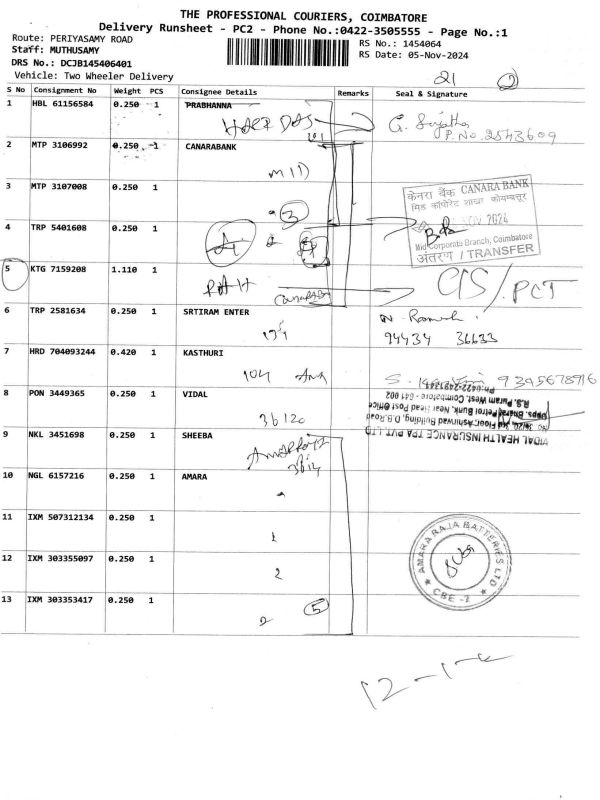 THE PROFESSIONAL COURIERS, COIMBATORE
Delivery Runsheet - PC2 - Phone No.:0422-3505555 - Page No.:1
Route: PERIYASAMY ROAD
RS No.: 1454064
Staff: MUTHUSAMY
RS Date: 05-Nov-2024
DRS No.: DCJB145406401
Vehicle: Two Wheeler Delivery
21 2
S No Consignment No Weight PCS Consignee Details Remarks Seal & Signature
1 HBL 61156584 0.250 1 PRABHANNA
HARI DAS
G. Sujatha
P.No. 2543609
2 MTP 3106992 0.250 1 CANARABANK
MID
3 MTP 3107008 0.250 1
3
केनरा बैंक CANARA BANK
मिड कॉर्पोरेट शाखा कोयम्बत्तूर
NOV 2024
Mid Corporate Branch, Coimbatore
अंतरण / TRANSFER
4 TRP 5401608 0.250 1
5 KTG 7159208 1.110 1
CIS/PCT
6 TRP 2581634 0.250 1 SRTIRAM ENTER
N. Ramesh
94434 36633
7 HRD 704093244 0.420 1 KASTHURI
104
S. 9395678916
8 PON 3449365 0.250 1 VIDAL
36120
VIDAL HEALTH INSURANCE TPA PVT LTD
No. 36/20, 3rd Floor, Ashirwad Building, D.B.Road
Opps. Bharat Petrol Bunk, Near Head Post Office
R.S. Puram West, Coimbatore - 641 002
9 NKL 3451698 0.250 1 SHEEBA
10 NGL 6157216 0.250 1 AMARA
11 IXM 507312134 0.250 1
12 IXM 303355097 0.250 1
2
AMARA RAJA BATTERIES LTD
CBE - 2
13 IXM 303353417 0.250 1
5